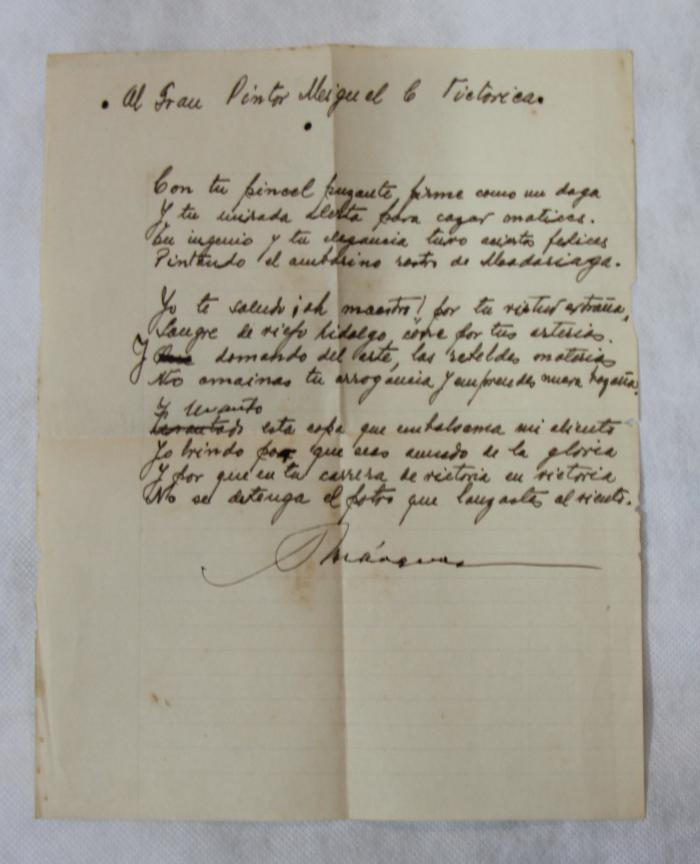 Al Gran Pintor Meiguel C Victorica.
Con tu pincel punzante, firme como un daga
Y tu mirada alerta para cazar matices.
Tu ingenio y tu elegancia tuvo aciertos felices
Pintando el ambarino rostro de Madariaga.
Yo te saludo ¡oh maestro! por tu virtud extraña,
Sangre de viejo hidalgo, corre por tus arterias.
Y domando del arte, las rebeldes materias
No amainas tu arrogancia y emprendes nueva hazaña.
Y levanto
esta copa que embalsama mi aliento
Yo brindo por que seas amado de la gloria
Y por que en tu carrera de victoria en victoria
No se detenga el potro que lanzastes al viento.